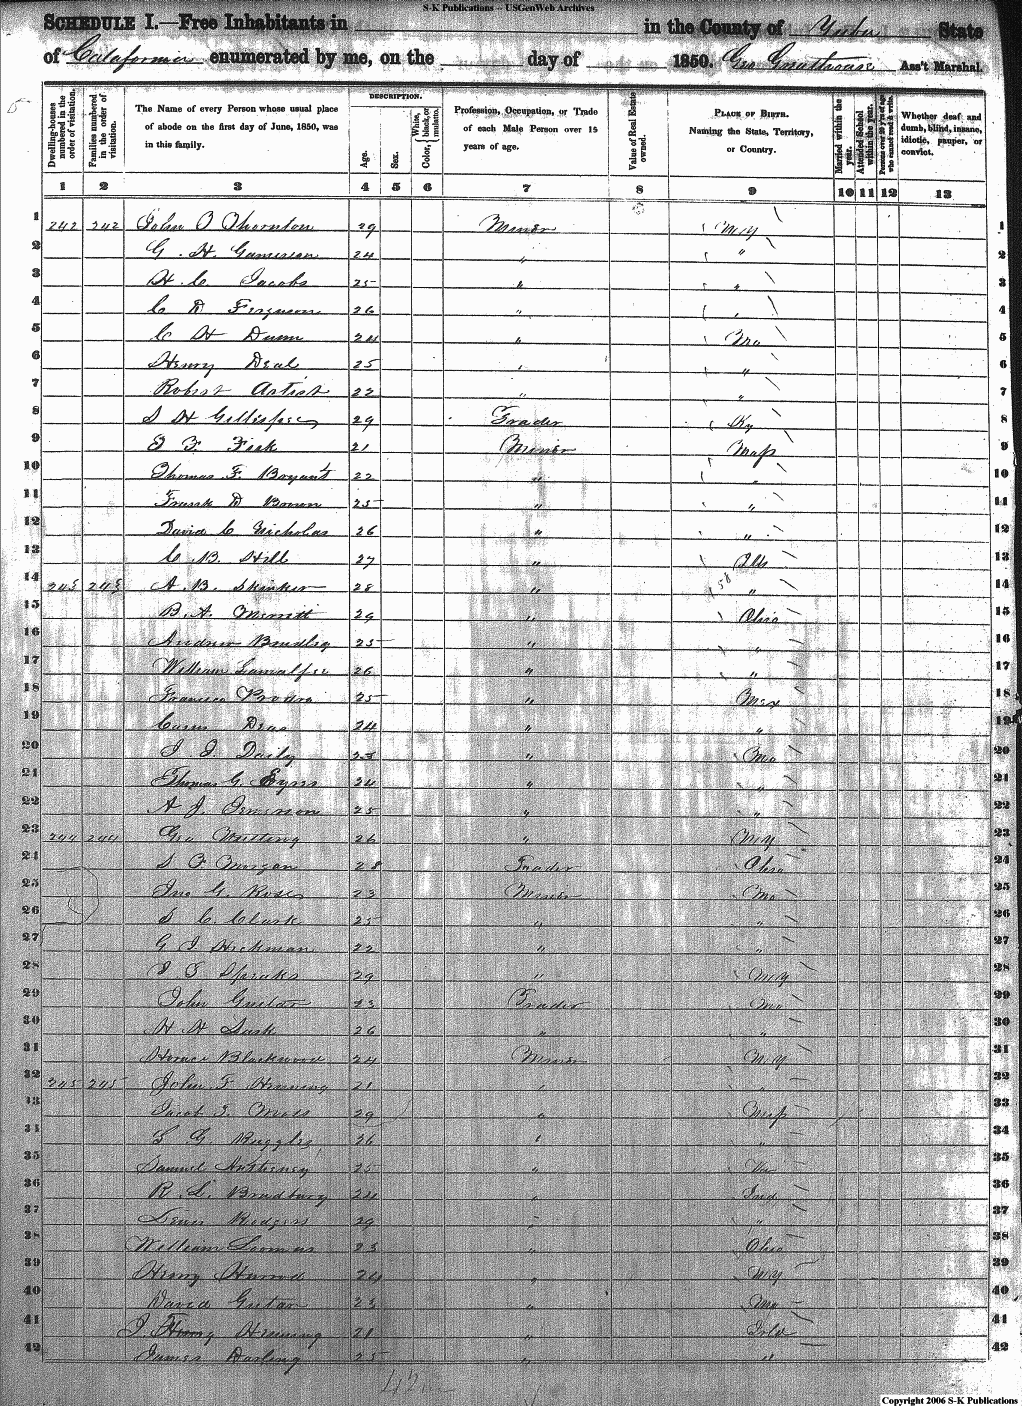 S-K Publications -- USGenWeb Archives
SCHEDULE I.—Free Inhabitants in in the County of Yuba State
of California enumerated by me, on the day of 1850. Ass't Marshal.
Dwelling-houses numbered in the order of visitation.
Families numbered in the order of visitation.
The Name of every Person whose usual place of abode on the first day of June, 1850, was in this family.
DESCRIPTION.
Age.
Sex.
Color, White, black, or mulatto.
Profession, Occupation, or Trade of each Male Person over 15 years of age.
Value of Real Estate owned.
PLACE OF BIRTH. Naming the State, Territory, or Country.
Married within the year.
Attended School within the year.
Persons over 20 y'rs of age who cannot read & write.
Whether deaf and dumb, blind, insane, idiotic, pauper, or convict.
1 2 3 4 5 6 7 8 9 10 11 12 13
1 242 242 John O Thornton 29 Miner N.Y 1
2 G. H. 24 " " 2
3 H. C. Jacobs 25 " " 3
4 C D Ferguson 26 " " 4
5 C H Dunn 24 " Mo 5
6 Henry Deal 25 " " 6
7 Robert Artist 22 " " 7
8 S H Gillispie 29 Trader Ky 8
9 F. Fisk 21 Miner Mass 9
10 Thomas F. Bryant 22 " " 10
11 Frank D Brown 25 " " 11
12 David C. Nicholas 26 " " 12
13 C. B. Hill 27 " Ills 13
14 243 243 A. B. Skinker 28 " " 14
15 B. A. Merritt 29 " Ohio 15
16 Andrew Bradley 25 " " 16
17 William 26 " " 17
18 Francisco 25 " Mex 18
19 24 " " 19
20 Daily 23 " Mo 20
21 Thomas G. Eyns 24 " " 21
22 A J. 25 " " 22
23 244 244 Geo 26 " N.Y 23
24 Morgan 28 Trader Ohio 24
25 Jno G. Rose 23 Miner Mo 25
26 S C Clark 25 " " 26
27 G J Hickman 22 " " 27
28 Spraks 29 " N.Y 28
29 John Gustav 23 Trader Mo 29
30 H H Sask 26 " " 30
31 Horace Blackwood 24 Miner N.Y 31
32 245 245 John F Henning 21 " " 32
33 Jacob Moss 29 " Miss 33
34 S G Ruggles 26 " " 34
35 Samuel 25 " Va 35
36 R. L. Bradbury 24 " Ind 36
37 Lewis Rodgers 29 " " 37
38 William Loomas 23 " Ohio 38
39 Henry 24 " N.Y 39
40 David Gustav 23 " Mo 40
41 J. Henning 21 " Irld 41
42 James Darling 25 " " 42
Copyright 2006 S-K Publications